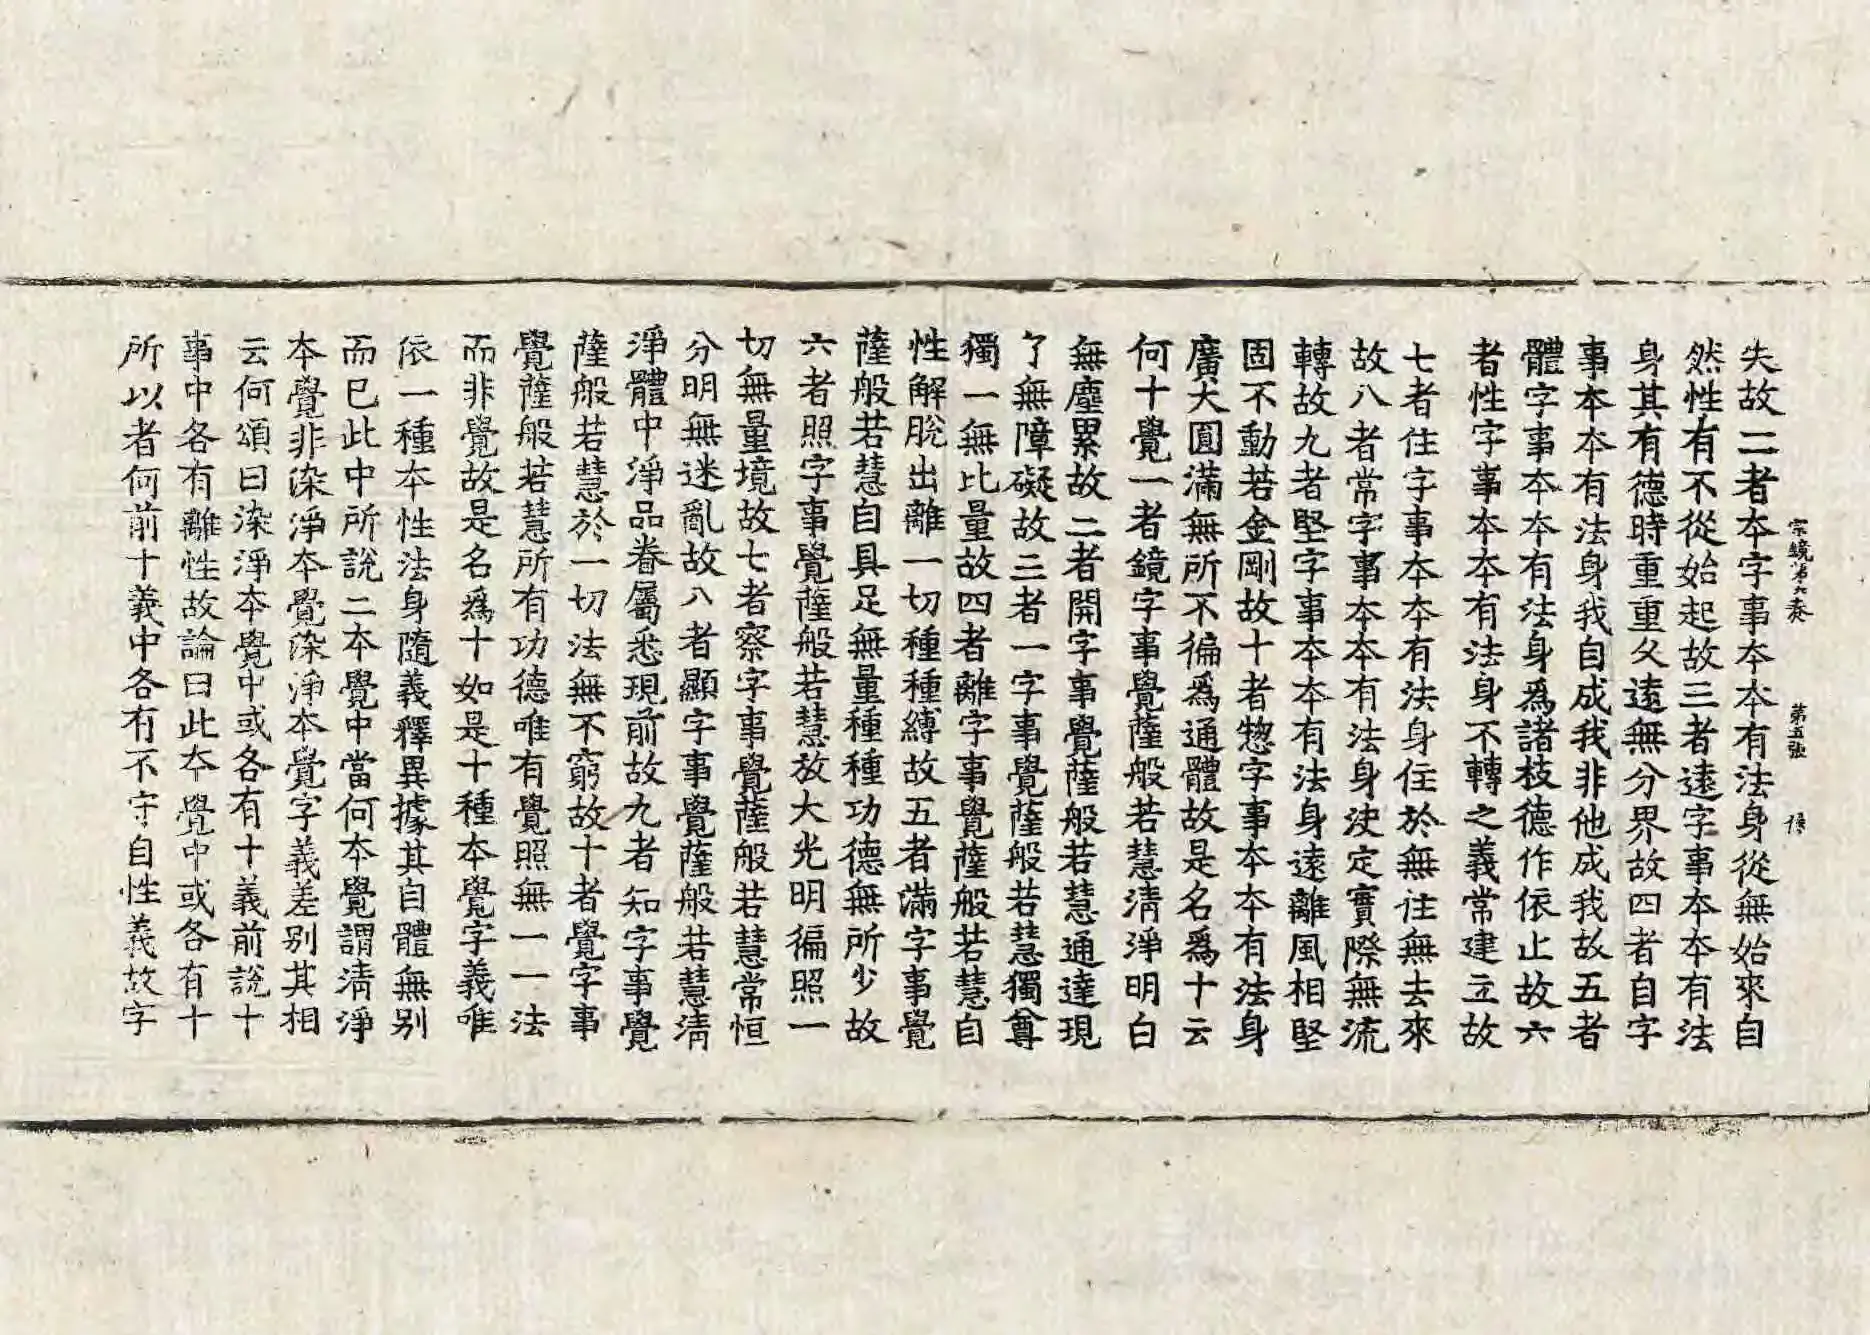 失故二者本字事本本有法身從無始來自
然性有不從始起故三者遠字事本本有法
身其有德時重重久遠無分界故四者自字
事本本有法身我自成我非他成我故五者
體字事本本有法身爲諸枝德作依止故六
者性字事本本有法身不轉之義常建立故
七者住字事本本有法身住於無住無去來
故八者常字事本本有法身决定實際無流
轉故九者堅字事本本有法身遠離風相堅
固不動若金剛故十者惣字事本本有法身
廣大圓滿無所不徧爲通體故是名爲十云
何十覺一者鏡字事覺薩般若慧清淨明白
無塵累故二者開字事覺薩般若慧通達現
了無障礙故三者一字事覺薩般若慧獨尊
獨一無比量故四者離字事覺薩般若慧自
性解脫出離一切種種縛故五者滿字事覺
薩般若慧自具足無量種種功德無所少故
六者照字事覺薩般若慧放大光明徧照一
切無量境故七者察字事覺薩般若慧常恒
分明無迷亂故八者顯字事覺薩般若慧清
淨體中淨品眷屬悉現前故九者知字事覺
薩般若慧於一切法無不窮故十者覺字事
覺薩般若慧所有功德唯有覺照無一一法
而非覺故是名爲十如是十種本覺字義唯
依一種本性法身隨義釋異據其自體無別
而巳此中所說二本覺中當何本覺謂清淨
本覺非染淨本覺染淨本覺字義差別其相
云何頌曰染淨本覺中或各有十義前說十
事中各有離性故論曰此本覺中或各有十
所以者何前十義中各有不守自性義故字
宗鏡第六卷 第五張